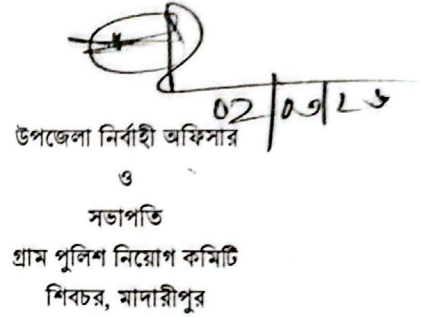 ০২/০৩/২৬
উপজেলা নির্বাহী অফিসার
ও
সভাপতি
গ্রাম পুলিশ নিয়োগ কমিটি
শিবচর, মাদারীপুর